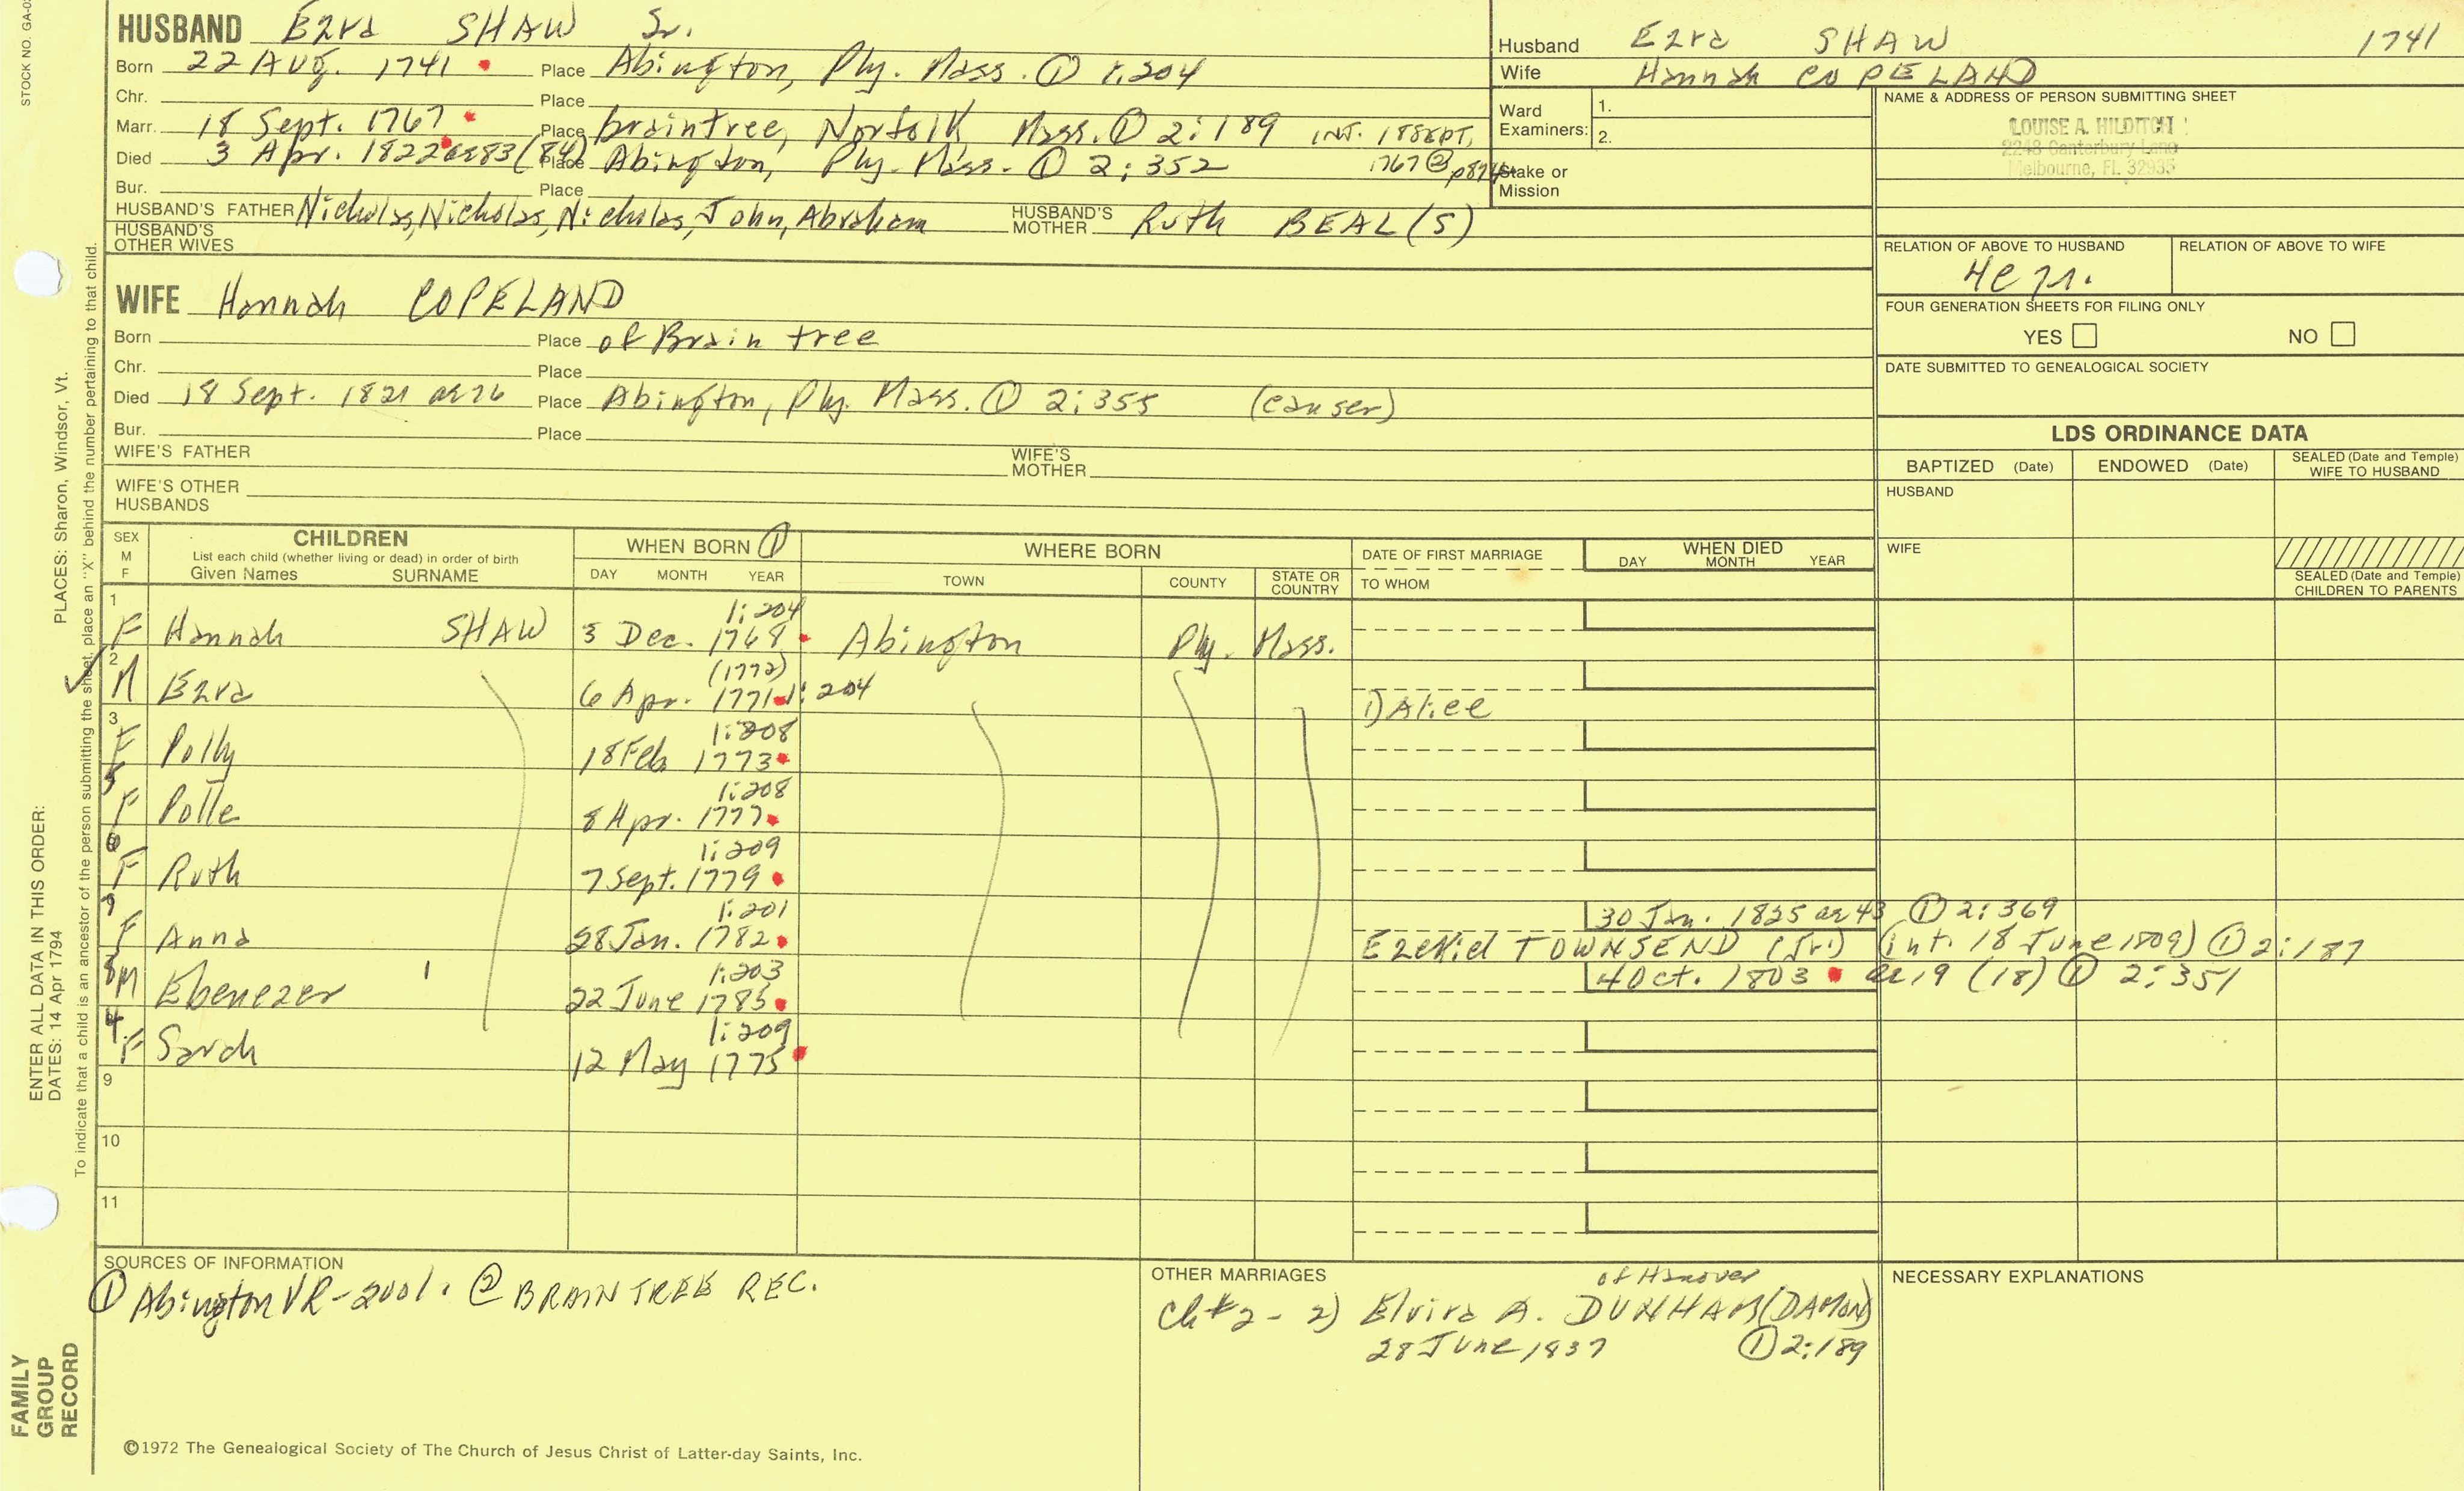 STOCK NO. GA-0
HUSBAND Ezra SHAW Sr.
Born 22 Aug. 1741 Place Abington, Ply. Mass. ① 1:204
Chr. Place
Marr. 18 Sept. 1767 Place braintree, Norfolk Mass. ① 2:189 INT. 18 SEPT,
1767 ② p874
Died 3 Apr. 1822 ae 83 (84) Place Abington, Ply. Mass. ① 2:352
Bur. Place
HUSBAND'S FATHER Nicholas, Nicholas, Nicholas, John, Abraham HUSBAND'S MOTHER Ruth BEAL(S)
HUSBAND'S OTHER WIVES
WIFE Hannah COPELAND
Born Place of Braintree
Chr. Place
Died 18 Sept. 1821 ae 76 Place Abington, Ply. Mass. ① 2:355 (canser)
Bur. Place
WIFE'S FATHER WIFE'S MOTHER
WIFE'S OTHER HUSBANDS
Husband Ezra SHAW 1741
Wife Hannah COPELAND
Ward Examiners: 1.
2.
Stake or Mission
NAME & ADDRESS OF PERSON SUBMITTING SHEET
LOUISE A. HILDITCH
2248 Canterbury Lane
Melbourne, Fl. 32935
RELATION OF ABOVE TO HUSBAND RELATION OF ABOVE TO WIFE
FOUR GENERATION SHEETS FOR FILING ONLY
YES NO
DATE SUBMITTED TO GENEALOGICAL SOCIETY
LDS ORDINANCE DATA
BAPTIZED (Date) ENDOWED (Date) SEALED (Date and Temple) WIFE TO HUSBAND
HUSBAND
WIFE
SEALED (Date and Temple) CHILDREN TO PARENTS
SEX M F CHILDREN WHEN BORN ① WHERE BORN DATE OF FIRST MARRIAGE WHEN DIED
List each child (whether living or dead) in order of birth
Given Names SURNAME DAY MONTH YEAR TOWN COUNTY STATE OR COUNTRY TO WHOM DAY MONTH YEAR
1:204
1 F Hannah SHAW 3 Dec. 1768 Abington Ply. Mass.
(1772)
2 M Ezra 6 Apr. 1771 1:204 1) Alice
1:208
3 F Polly 18 Feb 1773
1:208
5 F Polle 8 Apr. 1777
1:209
6 F Ruth 7 Sept. 1779
1:201 30 Jan. 1825 ae 43 ① 2:369
7 F Anna 28 Jan. 1782 Ezekiel TOWNSEND (Jr.) (int. 18 June 1809) ① 2:187
1:203 4 Oct. 1803 ae 19 (18) ① 2:351
8 M Ebenezer 22 June 1785
1:209
4. F Sarah 12 May 1775
9
10
11
SOURCES OF INFORMATION
① Abington VR-2vol. ② BRAINTREE REC.
OTHER MARRIAGES
of Hanover
Ch #2 - 2) Elvira A. DUNHAM (DAMON)
28 June 1837 ① 2:189
NECESSARY EXPLANATIONS
©1972 The Genealogical Society of The Church of Jesus Christ of Latter-day Saints, Inc.
PLACES: Sharon, Windsor, Vt.
To indicate that a child is an ancestor of the person submitting the sheet, place an "X" behind the number pertaining to that child.
ENTER ALL DATA IN THIS ORDER:
DATES: 14 Apr 1794
FAMILY
GROUP
RECORD